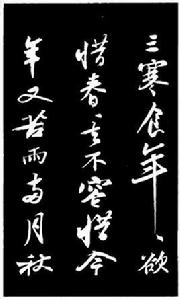 三寒食年〻欲
惜春〻去不容惜今
年又苦雨兩月秋